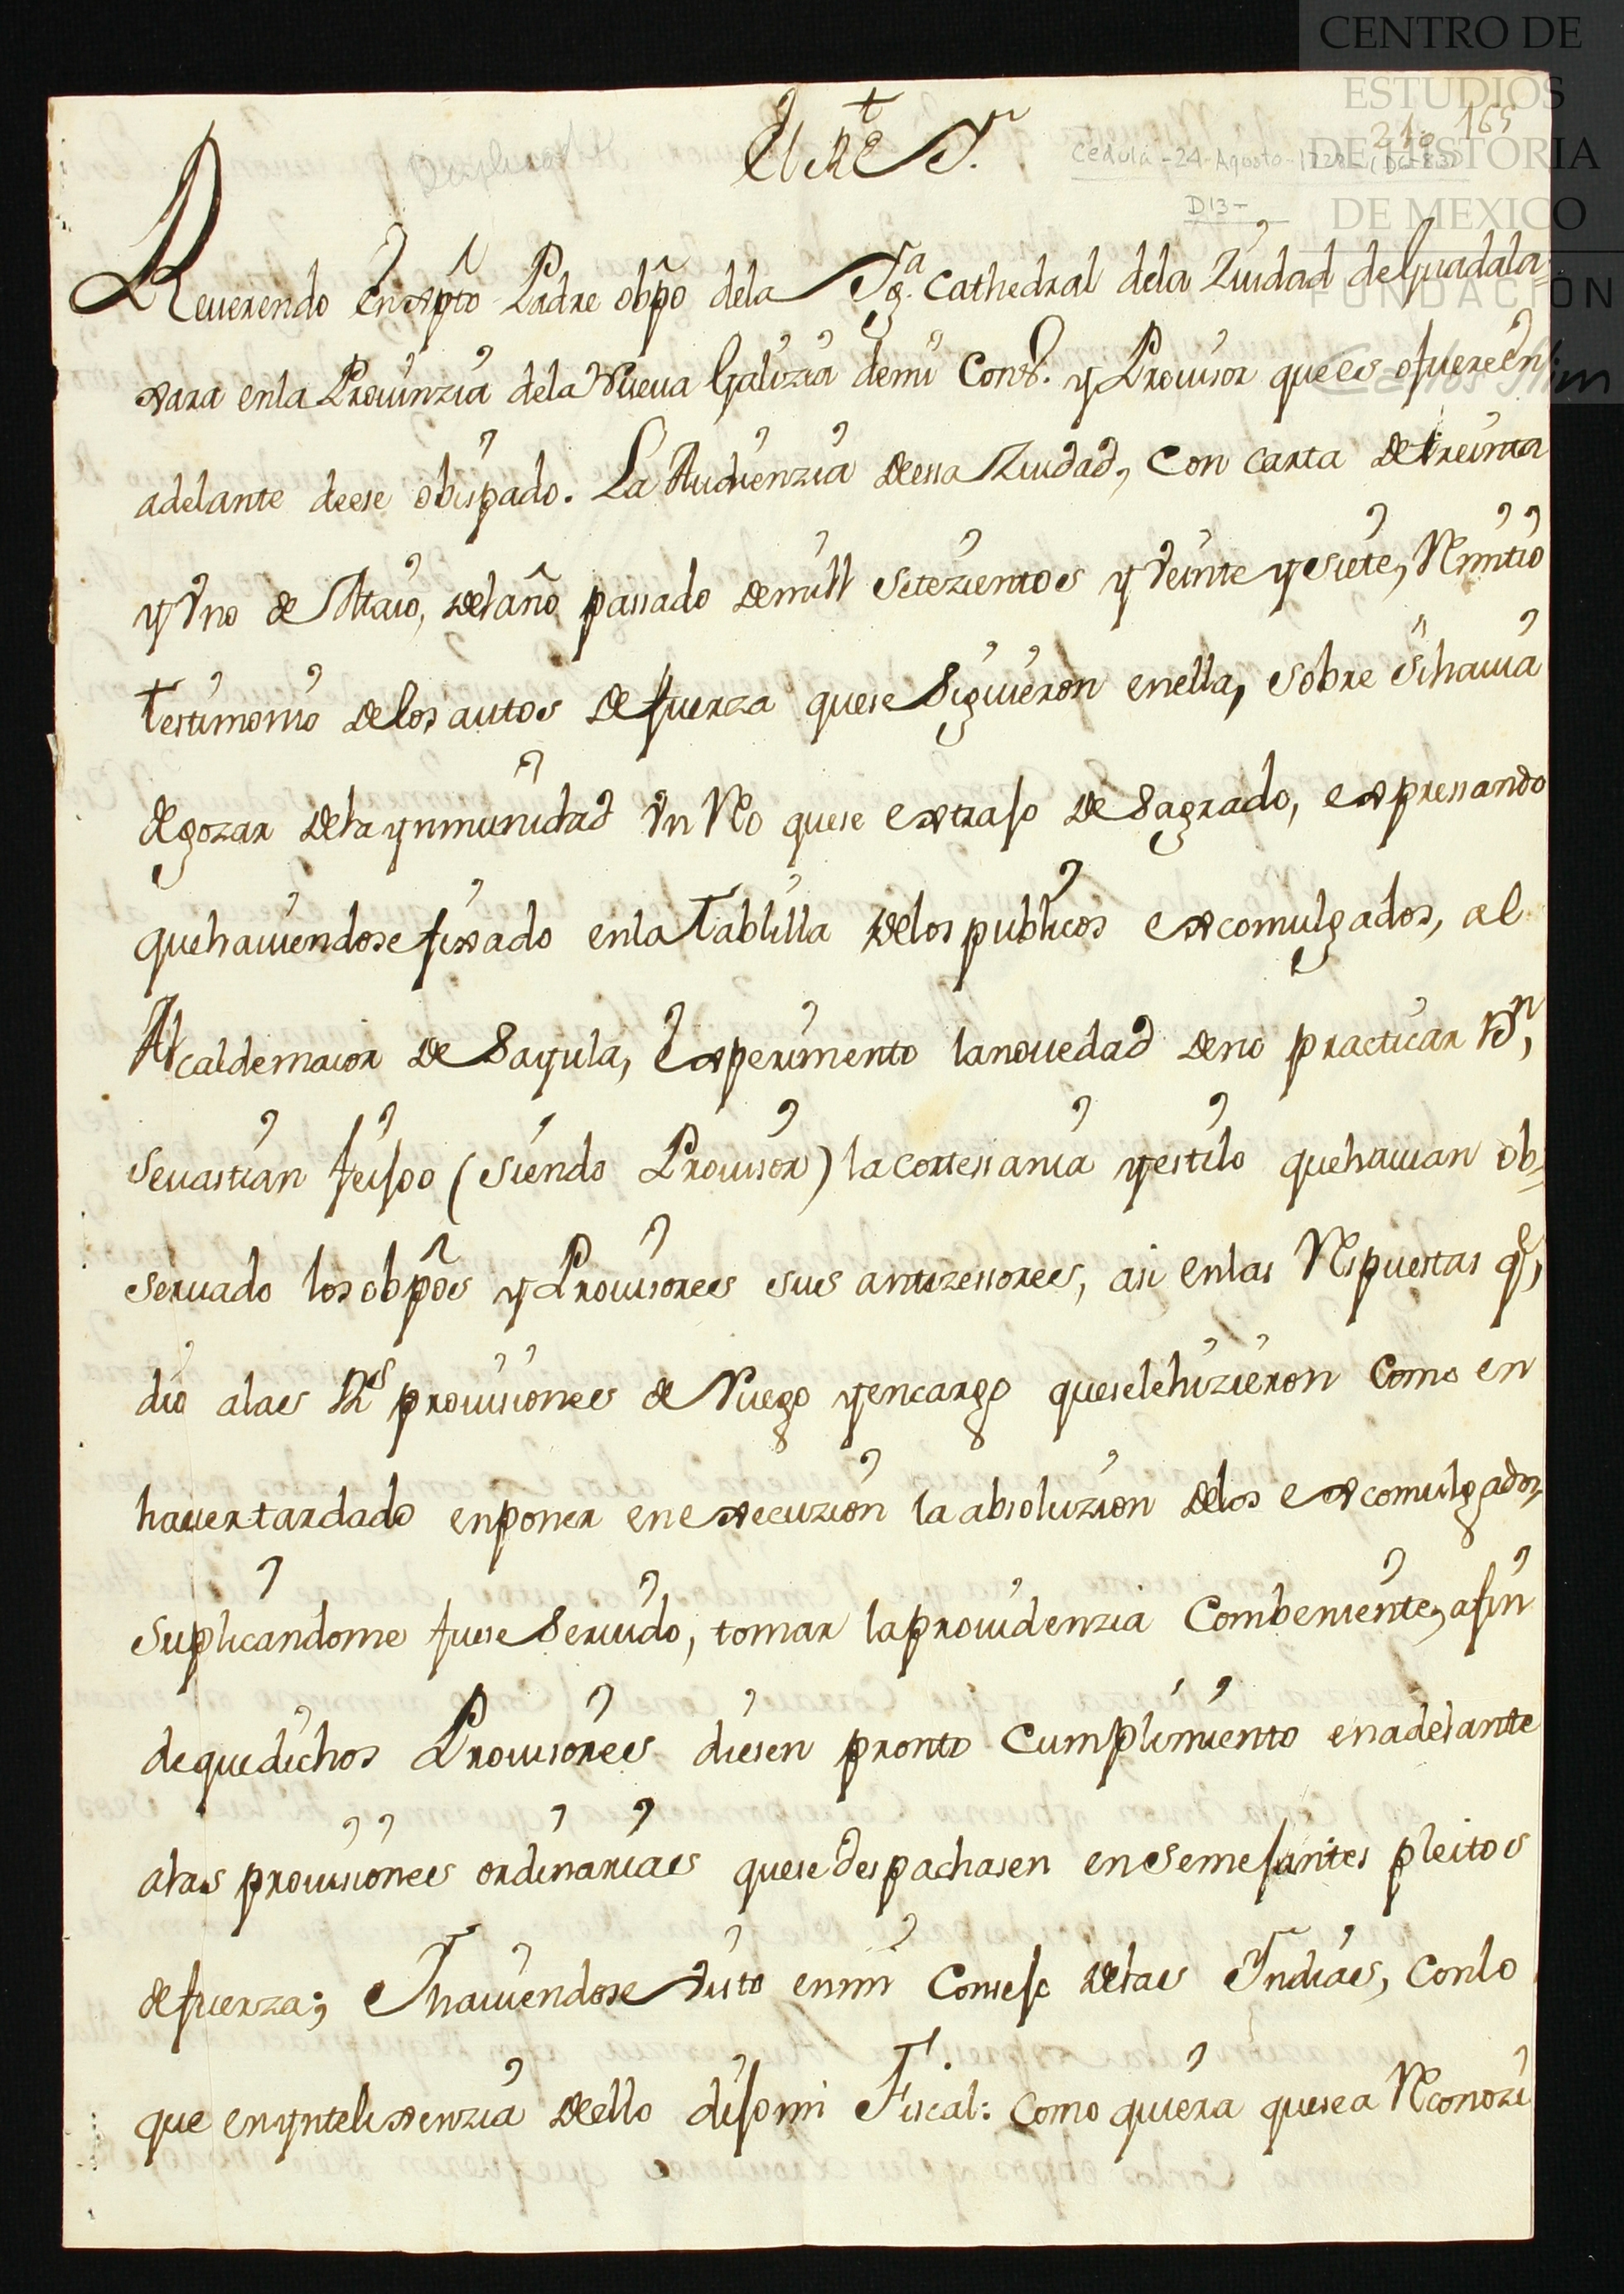 CENTRO DE
ESTUDIOS
DE HISTORIA
DE MEXICO
FUNDACIÓN
Carlos Slim
Duplicado
El Rey
210 165
Cedula - 24 - Agosto - 1728 -
D13 -
Reuerendo en xpto Padre obpo dela Yg.ª Cathedral dela Ziudad de Guadala=
xara enla Prouinzia dela Nueua Galizia demi Cons.º y Prouisor que es ofuere en
adelante deese obispado. La Audienzia de essa Ziudad, con carta de treinta
y Vno de Maio, del año passado demill setezientos y Veinte y siete, Rmitio
testimonio delos autos de fuerza quese Siguieron enella, sobre si hauia
de gozar dela ynmunidad Vn Reo quese extrajo de Sagrado, expressando
que hauiendose fixado enla Tablilla delos publicos excomulgados, al
Alcaldemaior de Sayula, Experimento lanouedad deno practicar Dn,
Seuastian feijoo (siendo Prouisor) la cortessania y estilo que hauian ob=
seruado los obpos y Prouisores sus antezessores, asi enlas Rspuestas q,
dio alas Rs prouisiones de Ruego y encargo quesele hizieron como en
hauer tardado enponer en execuzion la absoluzion delos excomulgados,
suplicandome fuese Seruido, tomar la prouidenzia combeniente, afin
de que dichos Prouisores diesen pronto cumplimiento en adelante
alas prouisiones ordinarias quese despachasen en semejantes pleitos
de fuerza; Y hauiendose Visto en mi Consejo delas Indias, con lo
que en yntelixenzia dello dijo mi Fiscal: como quiera que sea Rconozi